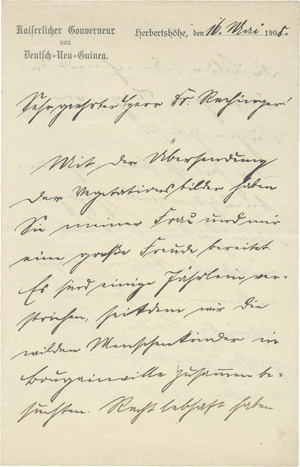 Kaiserlicher Gouverneur
von
Deutsch-Neu-Guinea.
Herbertshöhe, den 16. Mai 1908.
Sehr geehrter Herr Dr. Rechinger!
Mit der Übersendung
der Vegetationsbilder haben
Sie meiner Frau und mir
eine große Freude bereitet
Es sind einige Jährlein ver-
strichen, seitdem wir die
wilden Menschenkinder in
Bougainville zusammen be-
suchten. Recht lebhaft haben